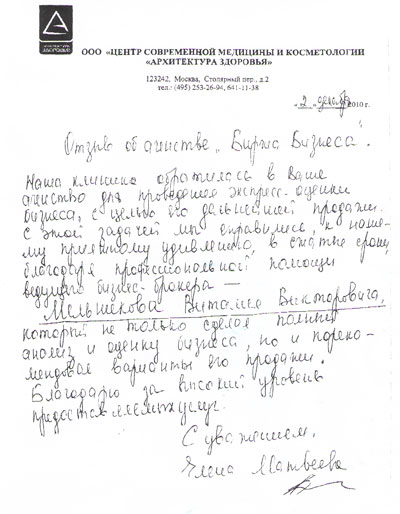 АРХИТЕКТУРА
ЗДОРОВЬЯ
ООО «ЦЕНТР СОВРЕМЕННОЙ МЕДИЦИНЫ И КОСМЕТОЛОГИИ
«АРХИТЕКТУРА ЗДОРОВЬЯ»
123242, Москва, Столярный пер., д.2
тел.: (495) 253-26-94, 641-11-38
« 2 » декабря 2010 г.
Отзыв об агентстве „Биржа Бизнеса“.
Наша клиника обратилась в Ваше
агенство для проведения экспресс-оценки
бизнеса, с целью его дальнейшей продажи.
С этой задачей мы справились, к наше-
му приятному удивлению, в сжатые сроки,
благодаря профессиональной помощи
ведущего бизнес-брокера —
Мельникова Виталия Викторовича,
который не только сделал полный
анализ и оценку бизнеса, но и пореко-
мендовал варианты его продажи.
Благодарю за высокий уровень
предоставляемых услуг.
С уважением,
Елена Матвеева